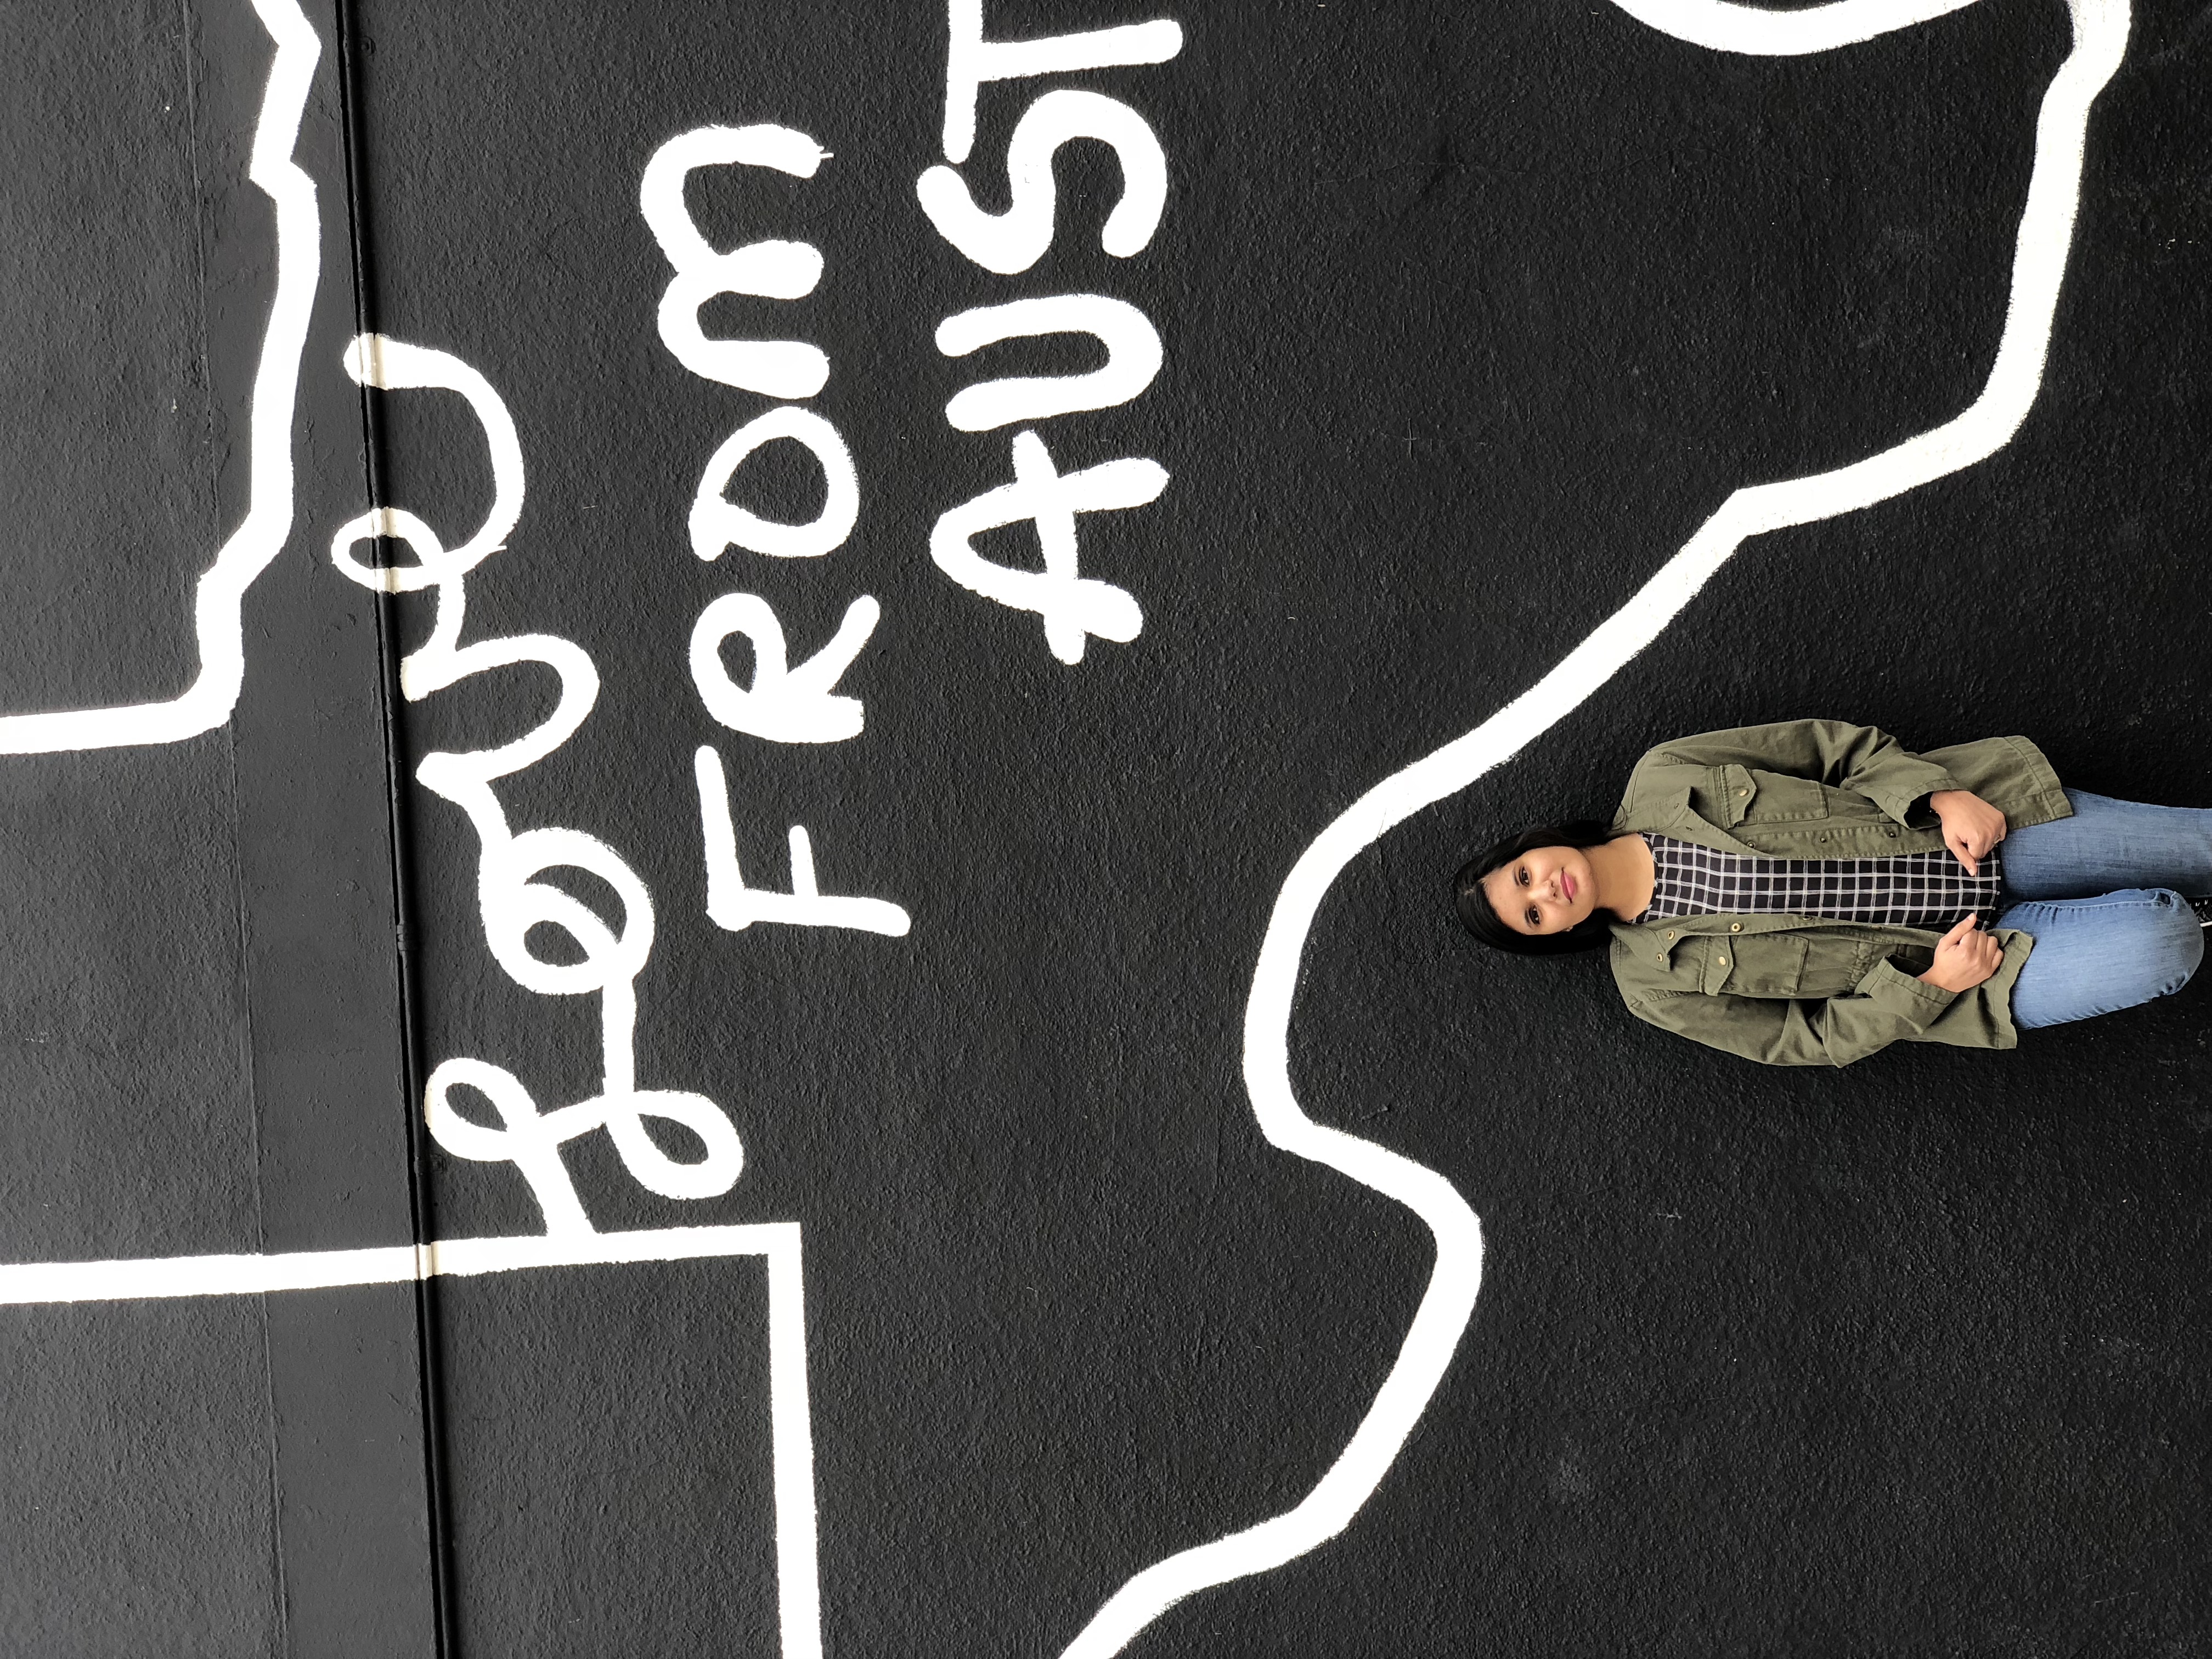 Love
FROM
AUST